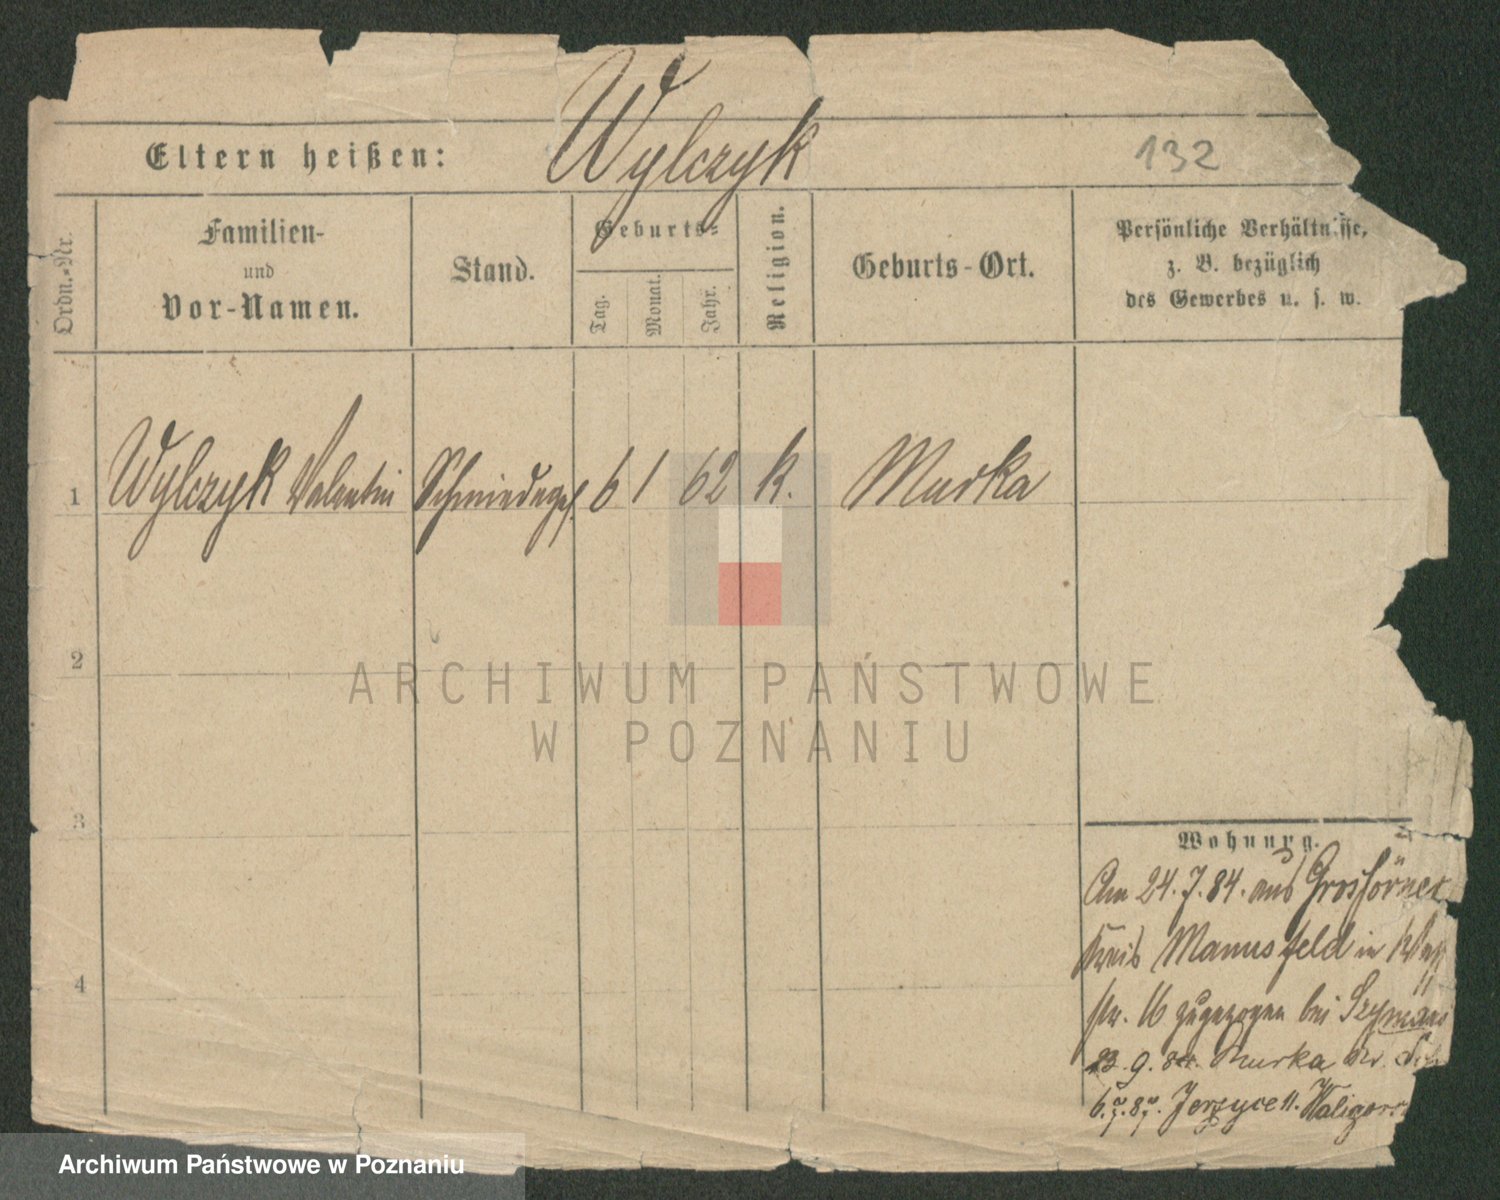 Eltern heißen: Wylczyk 132
Ordn.-Nr.
Familien-
und
Vor-Namen.
Stand.
Geburts-
Tag. Monat. Jahr.
Religion.
Geburts-Ort.
Persönliche Verhältnisse,
z. B. bezüglich
des Gewerbes u. s. w.
1 Wylczyk Valentin Schmiedeges. 6 1 62 k. Murka
2
3
4
Wohnung.
Am 24.7.84. aus Grosförner
Kreis Mannsfeld in
str. 16 zugezogen bei
23.9.84. Murka Kr.
Jerzyce 11.
ARCHIWUM PAŃSTWOWE
W POZNANIU
Archiwum Państwowe w Poznaniu